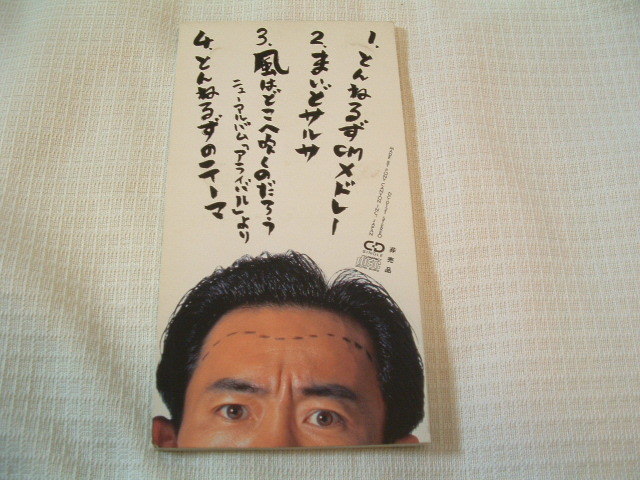 1. とんねるずCMメドレー
2. まいどサルサ
3. 風はどこへ吹くのだろう
ニューアルバム「アライバル」より
4. とんねるずのテーマ
非売品